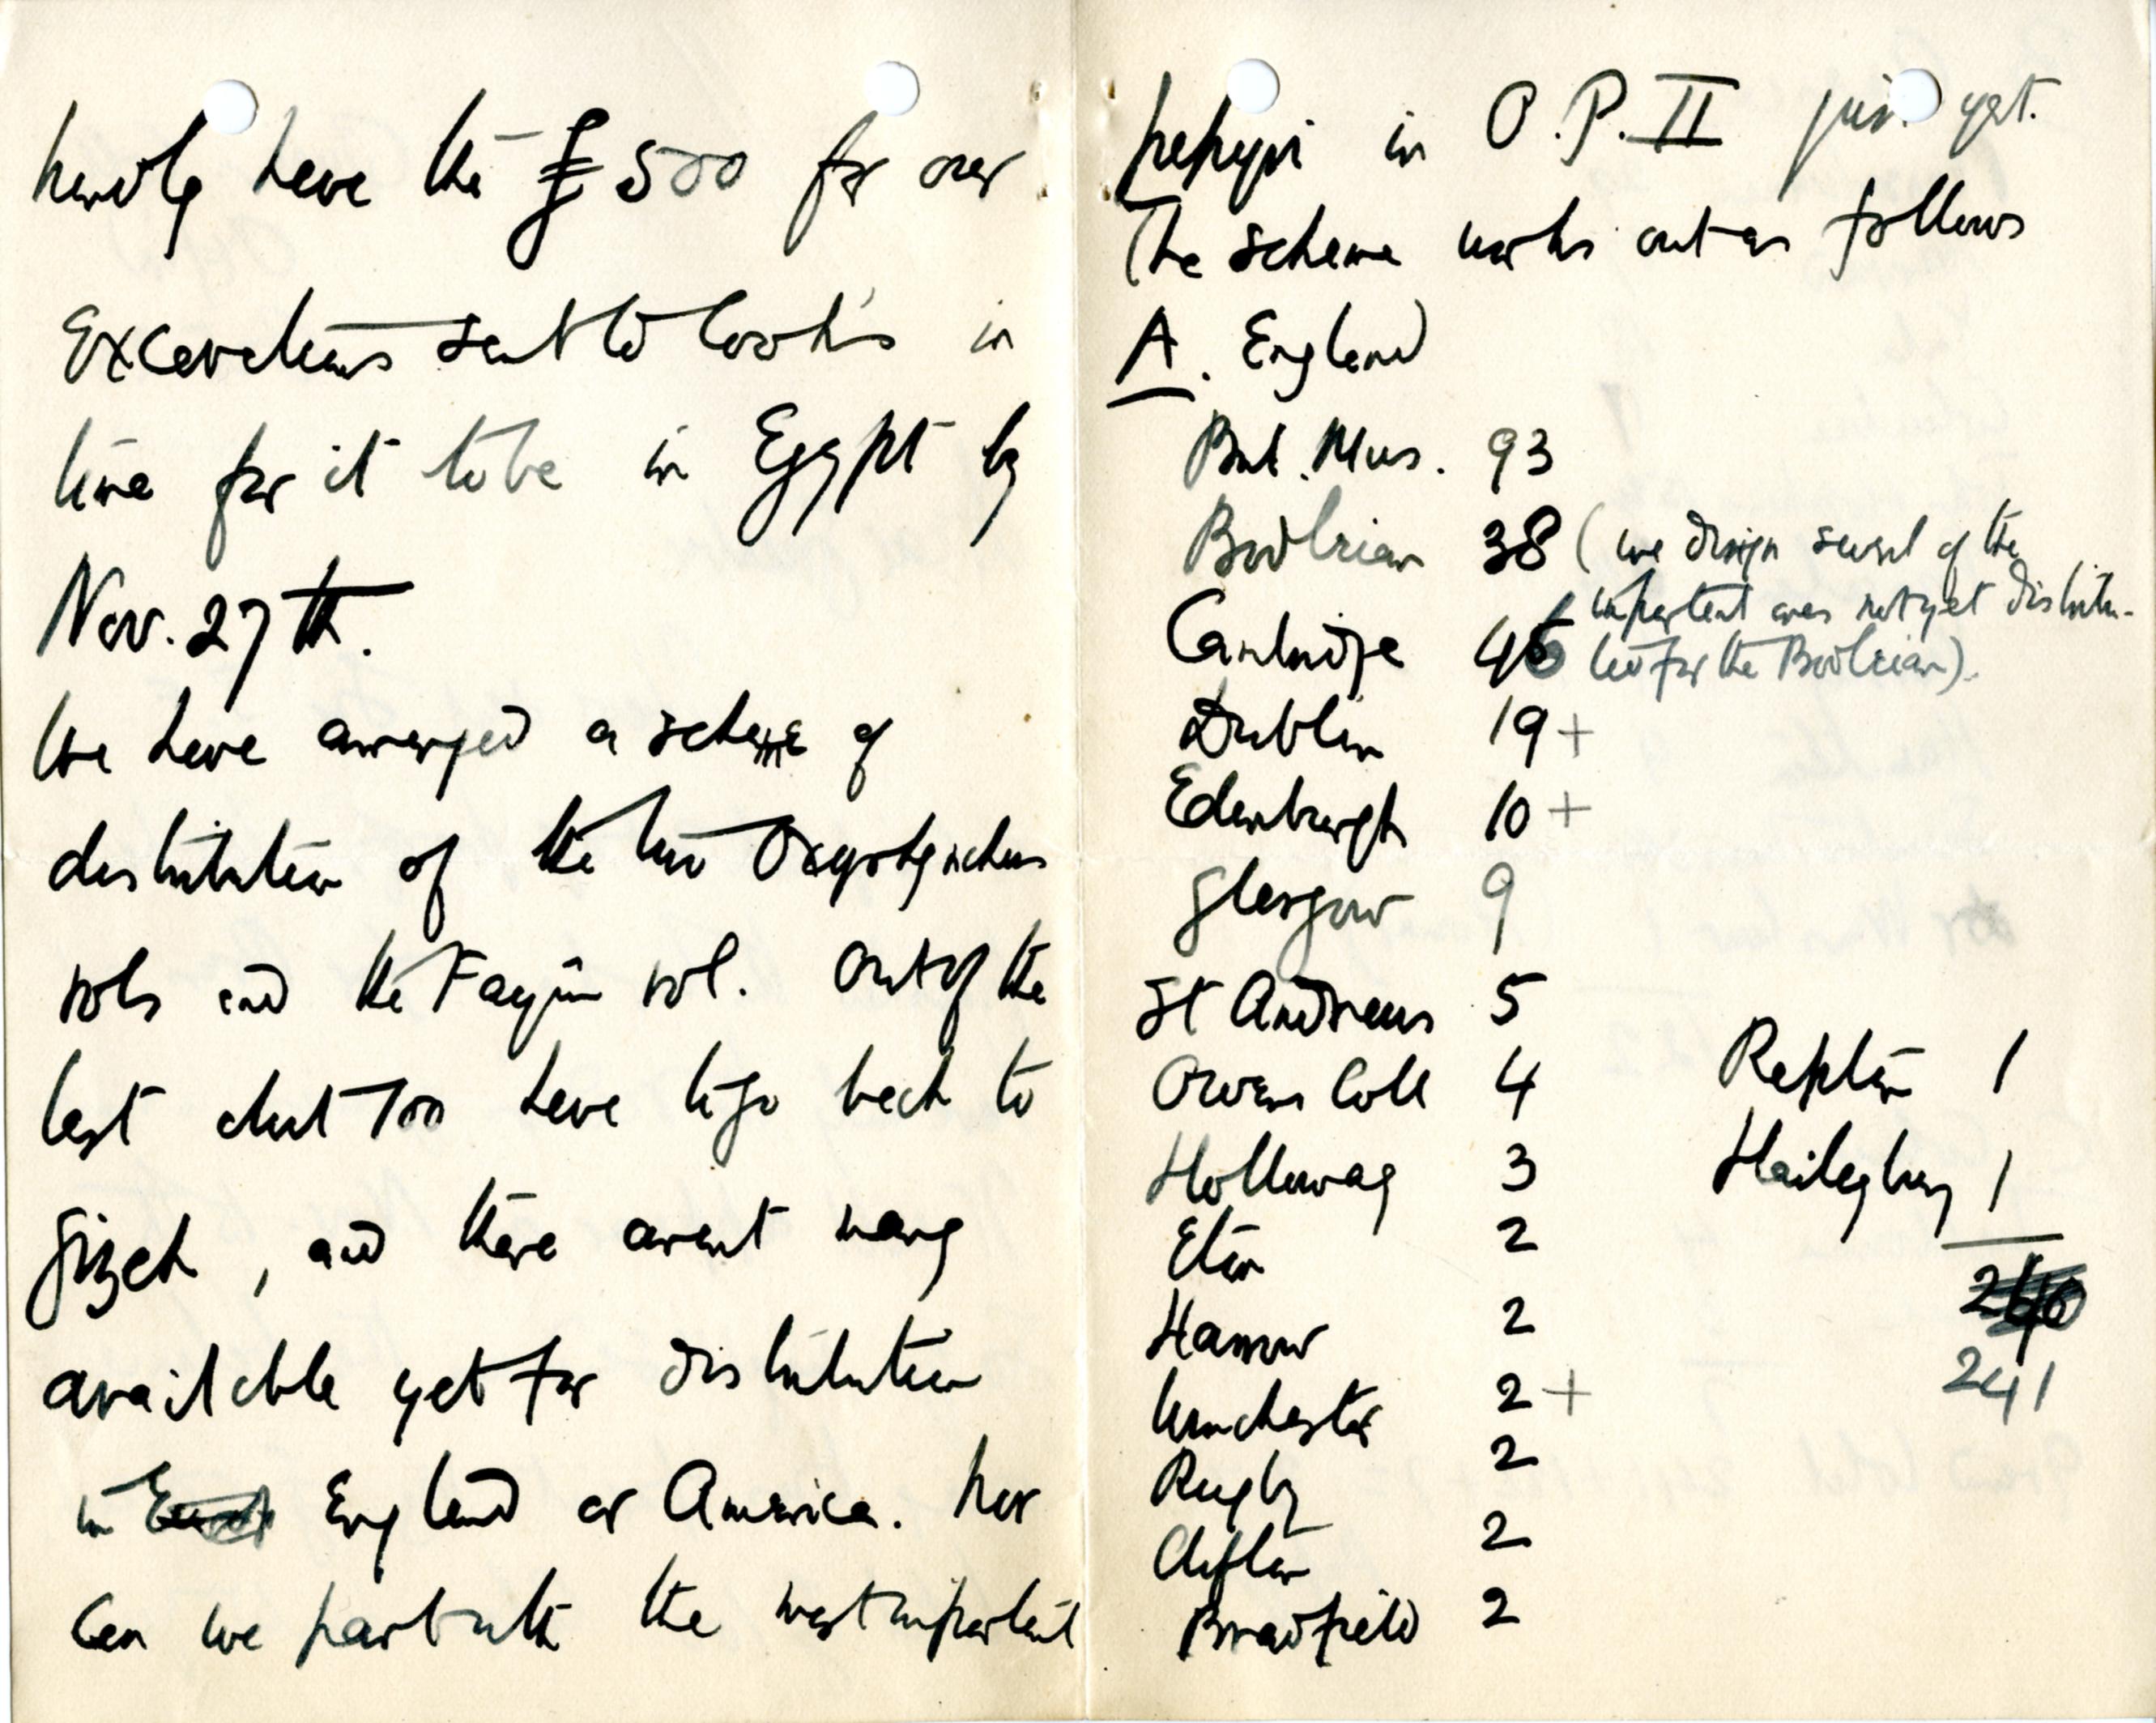 kindly have the £500 for our
excavations sent to Cook's in
time for it to be in Egypt by
Nov. 27th.
We have arranged a scheme of
distribution of the two Oxyrhynchus
vols and the Fayûm vol. Out of the
last about 100 have to go back to
Gizeh, and there arent many
available yet for distribution
in England or America. Nor
can we part with the most important
papyri in O.P. II just yet.
The scheme works out as follows
A. England
Brit. Mus. 93
Bodleian 38 (we design several of the
important ones not yet distribu-
ted for the Bodleian).
Cambridge 46
Dublin 19+
Edenburgh 10+
Glasgow 9
St Andrews 5
Owens Coll 4
Holloway 3
Eton 2
Harrow 2
Winchester 2+
Rugby 2
Clifton 2
Bradfield 2
Repton 1
Haileybury 1
241